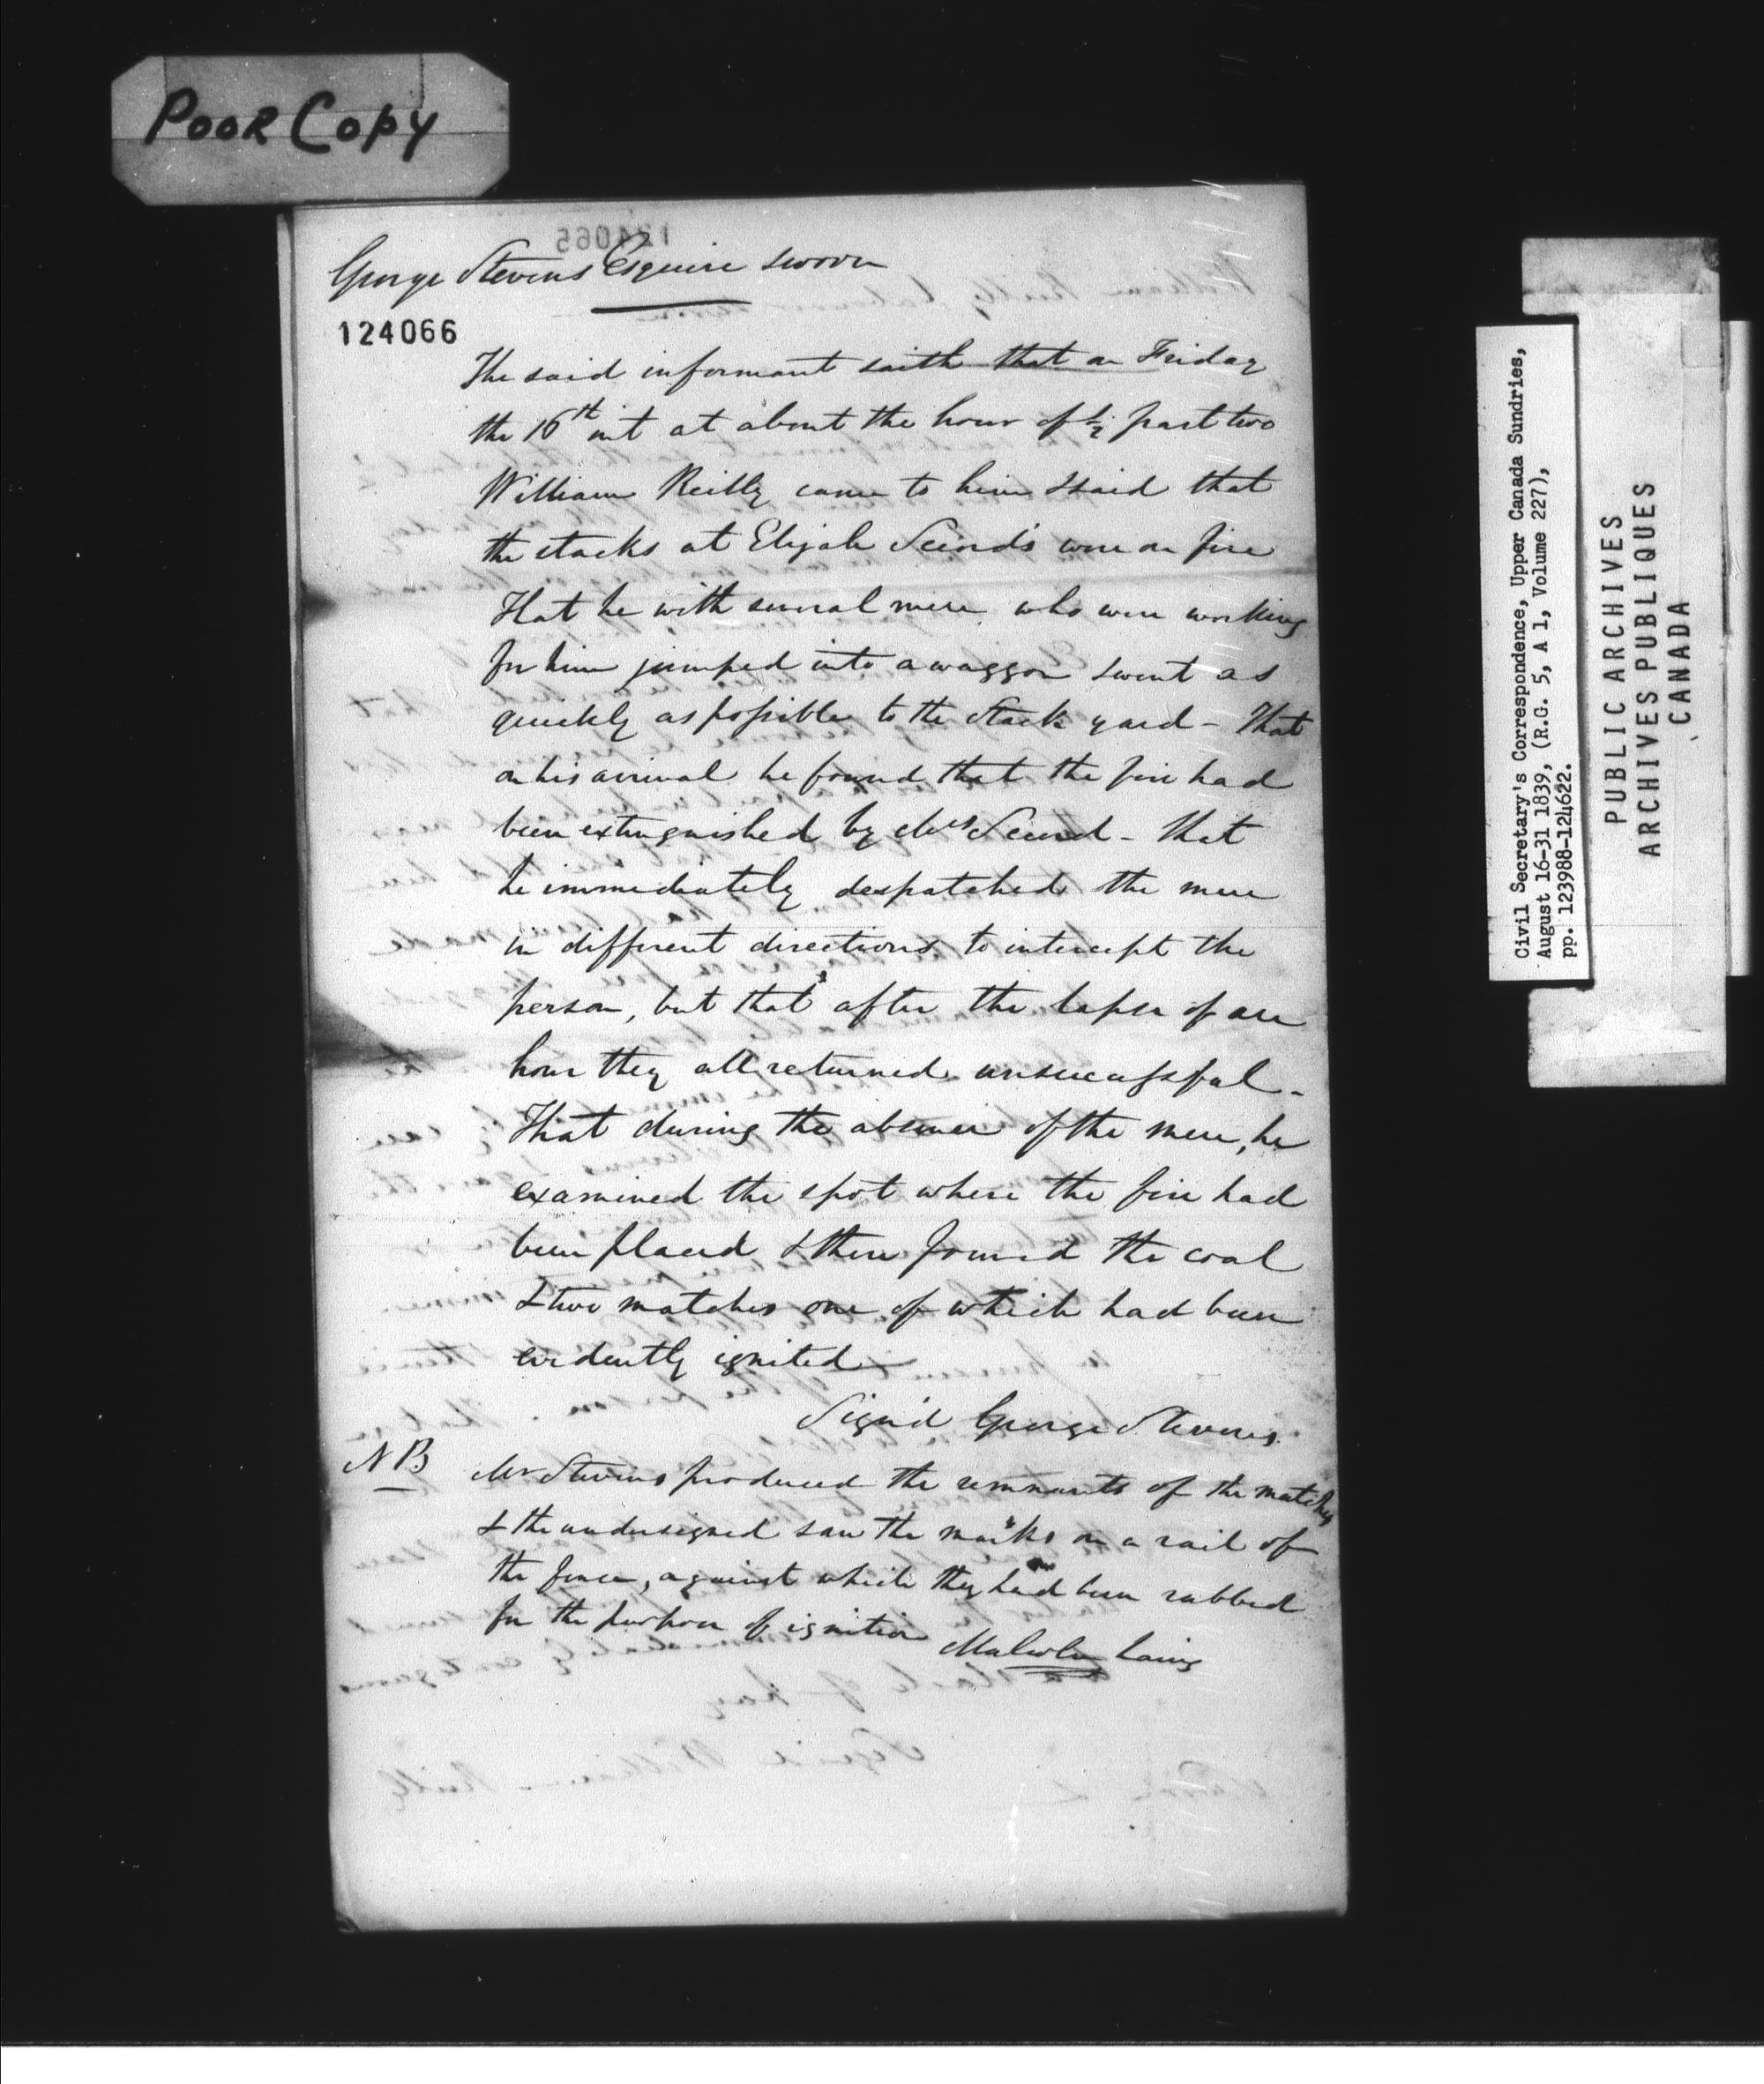 POOR COPY
124065
George Stevens Esquire sworn
124066
The said informant saith that on Friday
the 16th int at about the hour of ½ past two
William Reilly came to him & said that
the stacks at Elijah Secord's were on fire
That he with several men who were working
for him jumped into a waggon & went as
quickly as possible to the Stack yard - That
on his arrival he found that the fire had
been extinguished by Mrs Secord - that
he immediately despatched the men
in different directions to intercept the
person, but that after the lapse of an
hour they all returned unsuccessful -
That during the absence of the men, he
examined the spot where the fire had
been placed & there found the coal
& two matches one of which had been
evidently ignited
Sign'd George Stevens.
NB Mr Stevens produced the remnants of the matches
& the undersigned saw the marks on a rail of
the fence, against which they had been rubbed
for the purpose of ignition Malcolm Laing
Civil Secretary's Correspondence, Upper Canada Sundries,
August 16-31 1839, (R.G. 5, A 1, Volume 227),
pp. 123988-124622.
PUBLIC ARCHIVES
ARCHIVES PUBLIQUES
CANADA